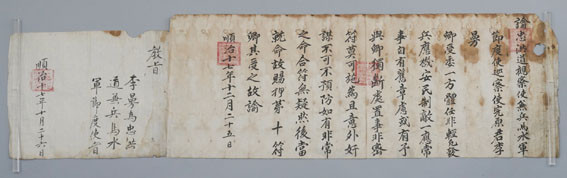 諭忠洪道觀察使兼兵馬水軍
節度使巡察使完原君李
卿受委一方體任非輕凡發
兵應機安民制敵一應常
事自有舊章慮或有予
與卿獨斷處置事非密
符莫可施爲且意外奸
謀不可不預防如有非常
之命合符無疑然後當
就命故賜押第十符
卿其受之故諭
順治十七年十二月二十五日
教旨
李爲忠洪
道兼兵馬水
軍節度使者
順治十七年十月二十六日